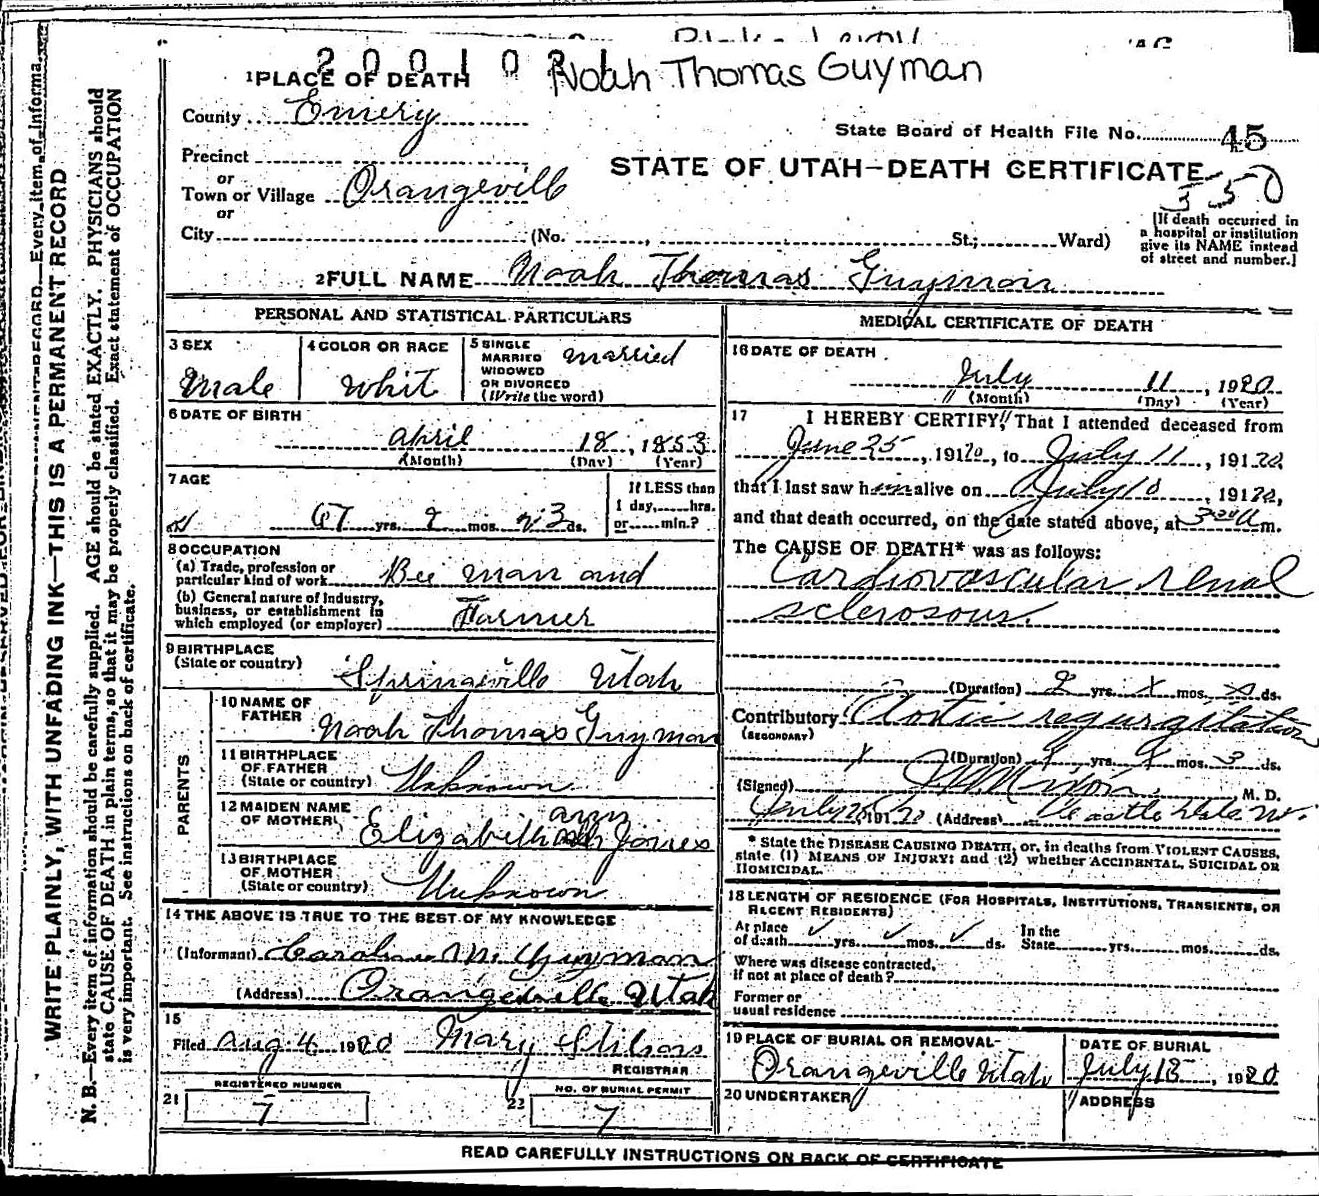 2 0 0 1 0
Noah Thomas Guyman
1 PLACE OF DEATH
County Emery
State Board of Health File No. 45
Precinct
or
STATE OF UTAH—DEATH CERTIFICATE
350
Town or Village Orangeville
or
City (No. , St.; Ward)
[If death occurred in
a hospital or institution
give its NAME instead
of street and number.]
2 FULL NAME Noah Thomas Guymon
PERSONAL AND STATISTICAL PARTICULARS
3 SEX
Male
4 COLOR OR RACE
Whit
5 SINGLE
MARRIED
WIDOWED
OR DIVORCED
(Write the word)
Married
6 DATE OF BIRTH
April 18, 1853
(Month) (Day) (Year)
7 AGE
67 yrs. 2 mos. 23 ds.
If LESS than
1 day, hrs.
or min.?
8 OCCUPATION
(a) Trade, profession or
particular kind of work Bee man and
(b) General nature of Industry,
business, or establishment in
which employed (or employer) Farmer
9 BIRTHPLACE
(State or country)
Springville Utah
PARENTS
10 NAME OF
FATHER
Noah Thomas Guyman
11 BIRTHPLACE
OF FATHER
(State or country) Unknown
12 MAIDEN NAME
OF MOTHER
Elizabeth ann Jones
13 BIRTHPLACE
OF MOTHER
(State or country) Unknown
14 THE ABOVE IS TRUE TO THE BEST OF MY KNOWLEDGE
(Informant) Caroline M. Guyman
(Address) Orangeville Utah
15
Filed Aug 4 1920 Mary Stilson
REGISTRAR
21
REGISTERED NUMBER
7
22
NO. OF BURIAL PERMIT
7
MEDICAL CERTIFICATE OF DEATH
16 DATE OF DEATH
July 11, 1920
(Month) (Day) (Year)
17 I HEREBY CERTIFY, That I attended deceased from
June 25, 19120, to July 11, 19120,
that I last saw him alive on July 10, 19120,
and that death occurred, on the date stated above, at 3:30 a m.
The CAUSE OF DEATH* was as follows:
Cardiovascular renal
sclerosous.
(Duration) 2 yrs. x mos. x ds.
Contributory Aortic regurgitation
(SECONDARY)
(Duration) yrs. mos. 3 ds.
(Signed) M. D.
191 (Address) Castle Dale
* State the DISEASE CAUSING DEATH, or, in deaths from VIOLENT CAUSES,
state (1) MEANS OF INJURY; and (2) whether ACCIDENTAL, SUICIDAL OR
HOMICIDAL.
18 LENGTH OF RESIDENCE (FOR HOSPITALS, INSTITUTIONS, TRANSIENTS, OR
RECENT RESIDENTS)
At place
of death yrs. mos. ds.
In the
State yrs. mos. ds.
Where was disease contracted,
if not at place of death?
Former or
usual residence
19 PLACE OF BURIAL OR REMOVAL
Orangeville Utah
DATE OF BURIAL
July 13, 1920
20 UNDERTAKER
ADDRESS
READ CAREFULLY INSTRUCTIONS ON BACK OF CERTIFICATE
WRITE PLAINLY, WITH UNFADING INK—THIS IS A PERMANENT RECORD
N. B.—Every item of information should be carefully supplied. AGE should be stated EXACTLY. PHYSICIANS should
state CAUSE OF DEATH in plain terms, so that it may be properly classified. Exact statement of OCCUPATION
is very important. See instructions on back of certificate.